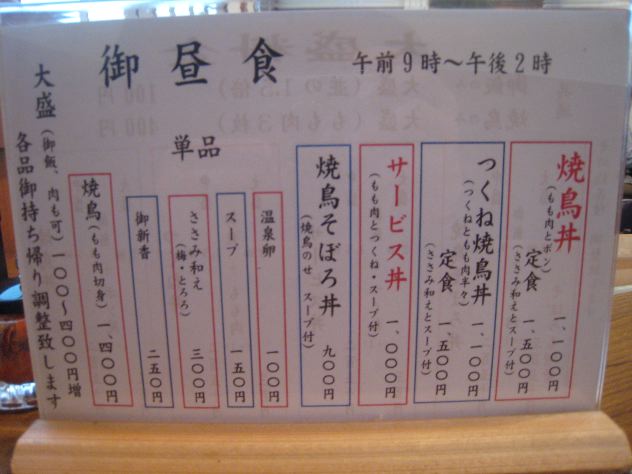 御昼食
午前9時～午後2時
焼鳥丼
(もも肉とボン)
一、一〇〇円
定食
(ささみ和えとスープ付)
一、五〇〇円
つくね焼鳥丼
(つくねともも肉半々)
一、一〇〇円
定食
(ささみ和えとスープ付)
一、五〇〇円
サービス丼
(もも肉とつくね・スープ付)
一、〇〇〇円
焼鳥そぼろ丼
(焼鳥のせ スープ付)
九〇〇円
単品
温泉卵
一〇〇円
スープ
一五〇円
ささみ和え
(梅・とろろ)
三〇〇円
御新香
二五〇円
焼鳥(もも肉切身)
一、四〇〇円
大盛(御飯、肉も可)一〇〇～四〇〇円増
各品御持ち帰り調整致します